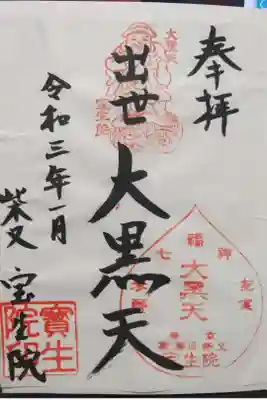 奉拝
大黒天
出世大黒天
令和三年一月
柴又
宝生院
福神
七
大黒天
宝生院
寶生
院印